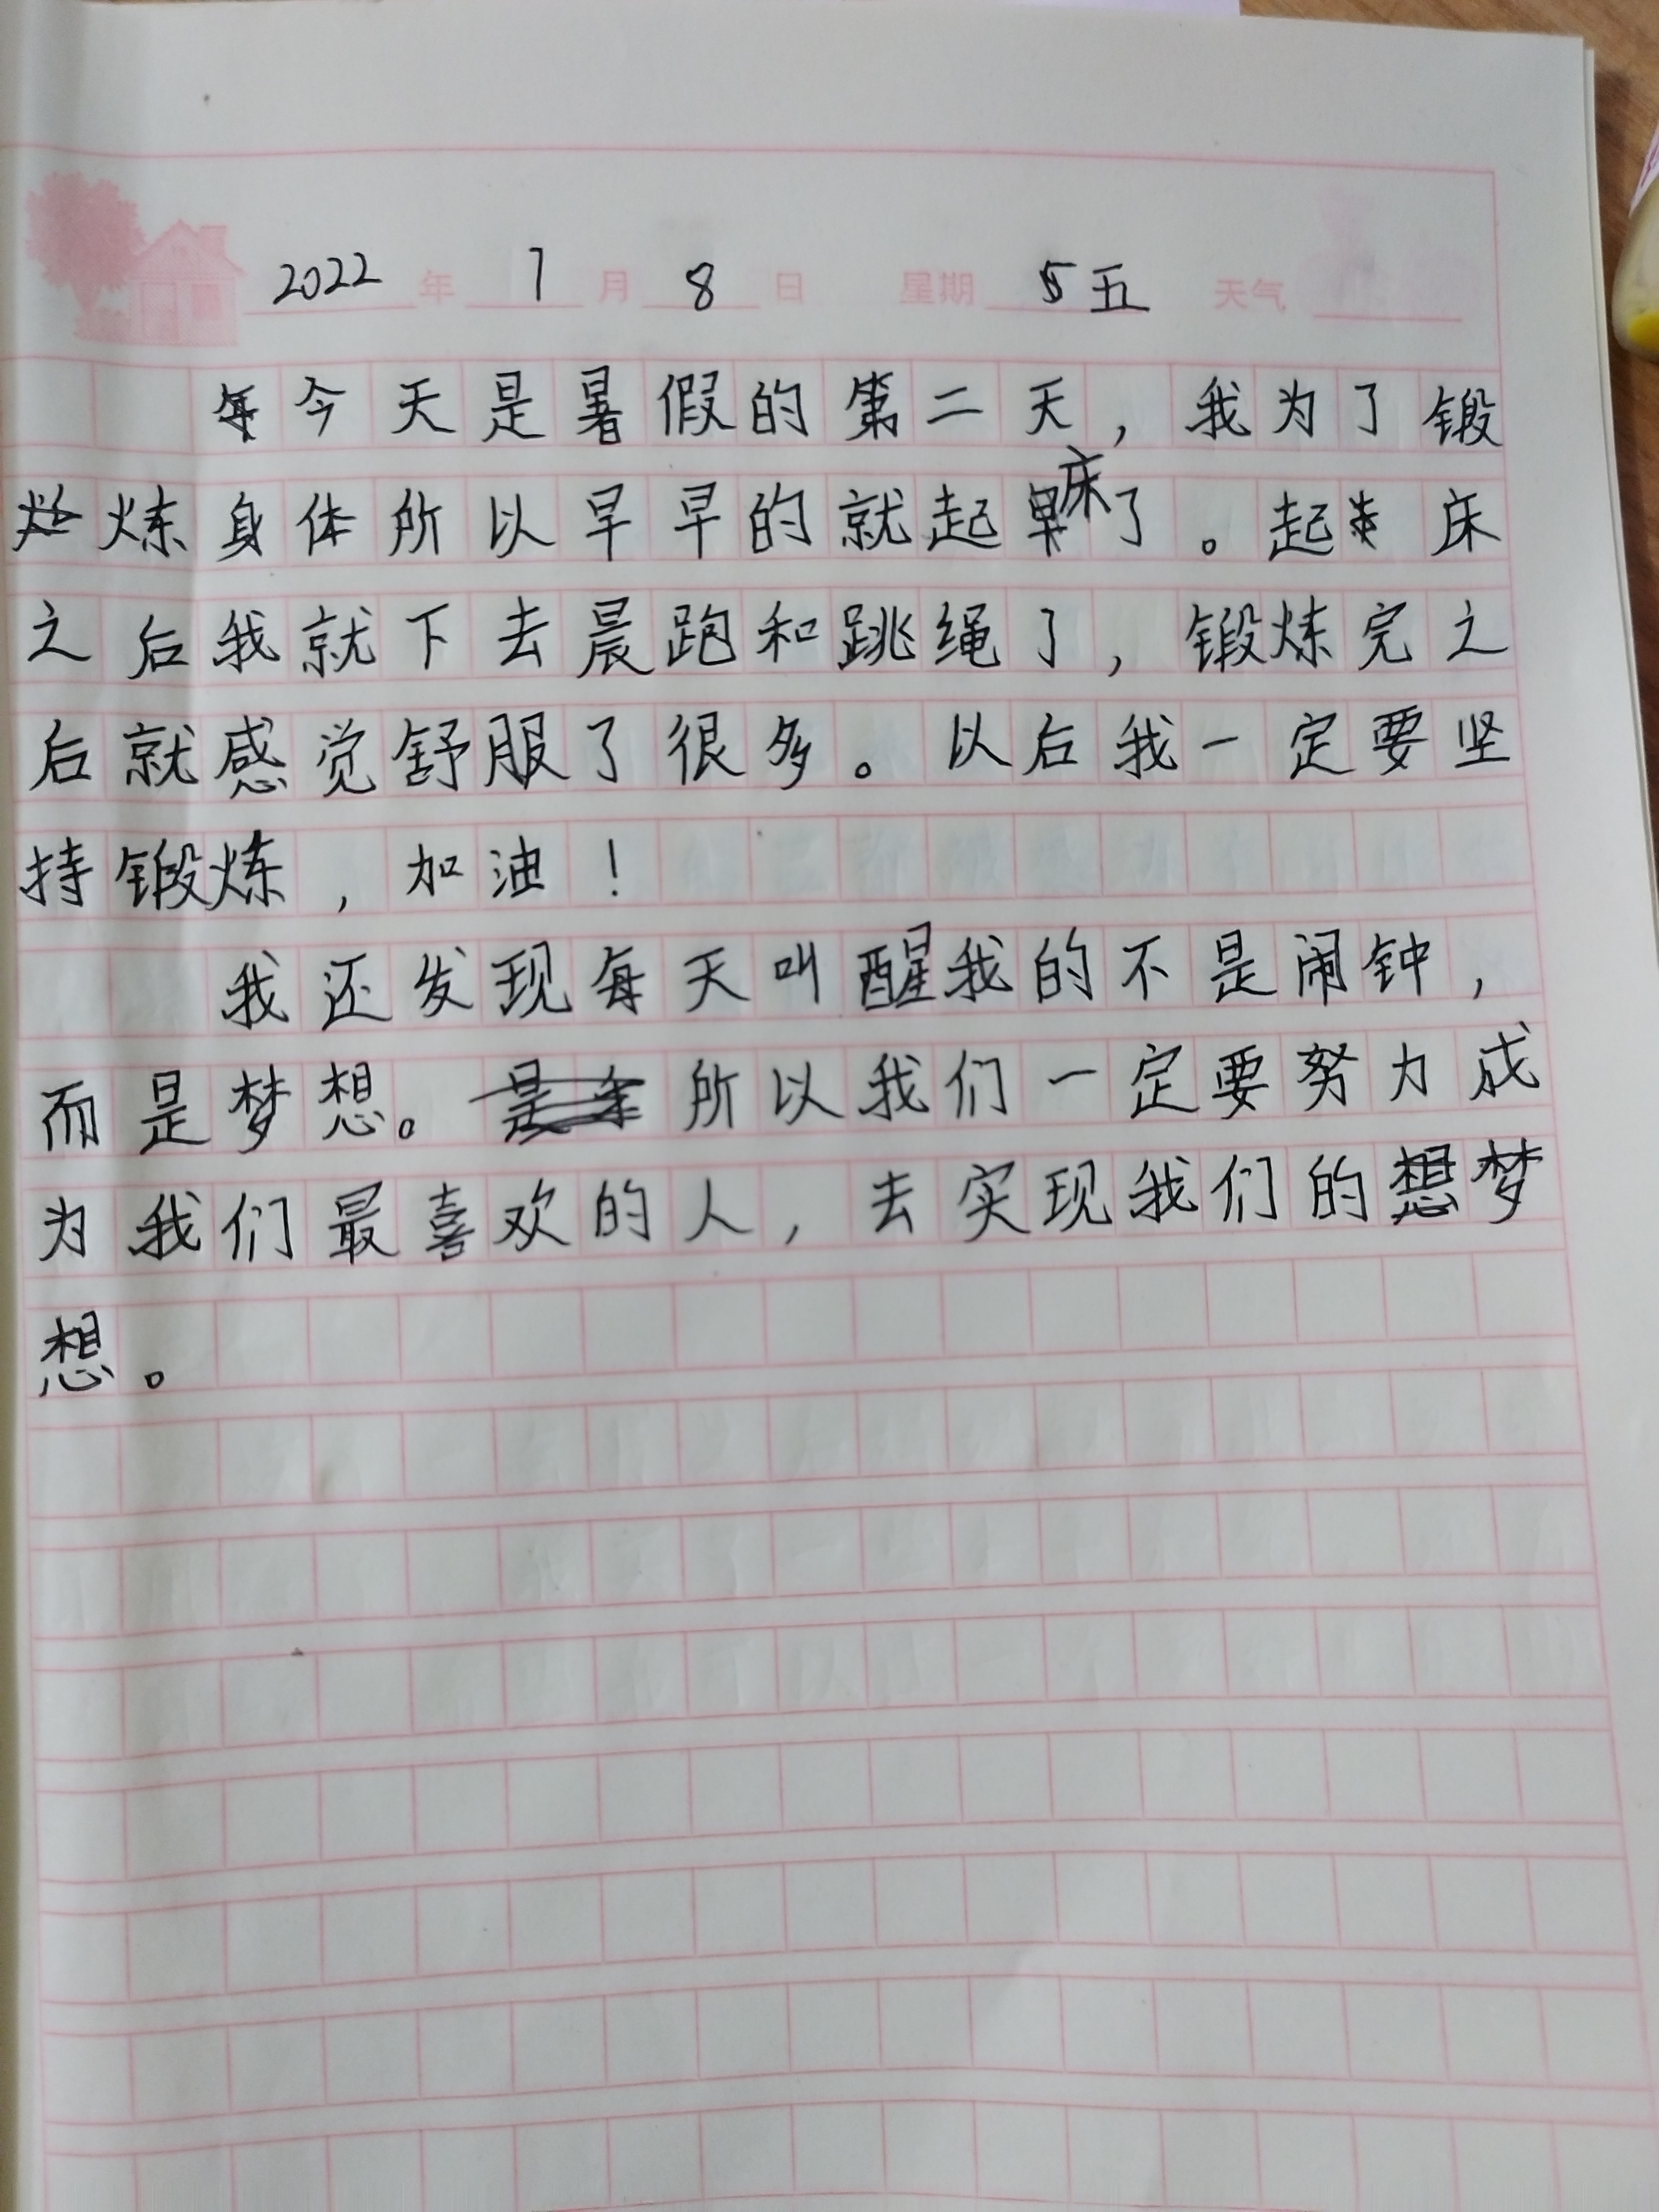 2022年7月8日 星期五 天气
今天是暑假的第二天，我为了锻
炼身体所以早早的就起床了。起床
之后我就下去晨跑和跳绳了，锻炼完之
后就感觉舒服了很多。以后我一定要坚
持锻炼，加油！
我还发现每天叫醒我的不是闹钟，
而是梦想。所以我们一定要努力成
为我们最喜欢的人，去实现我们的梦
想。